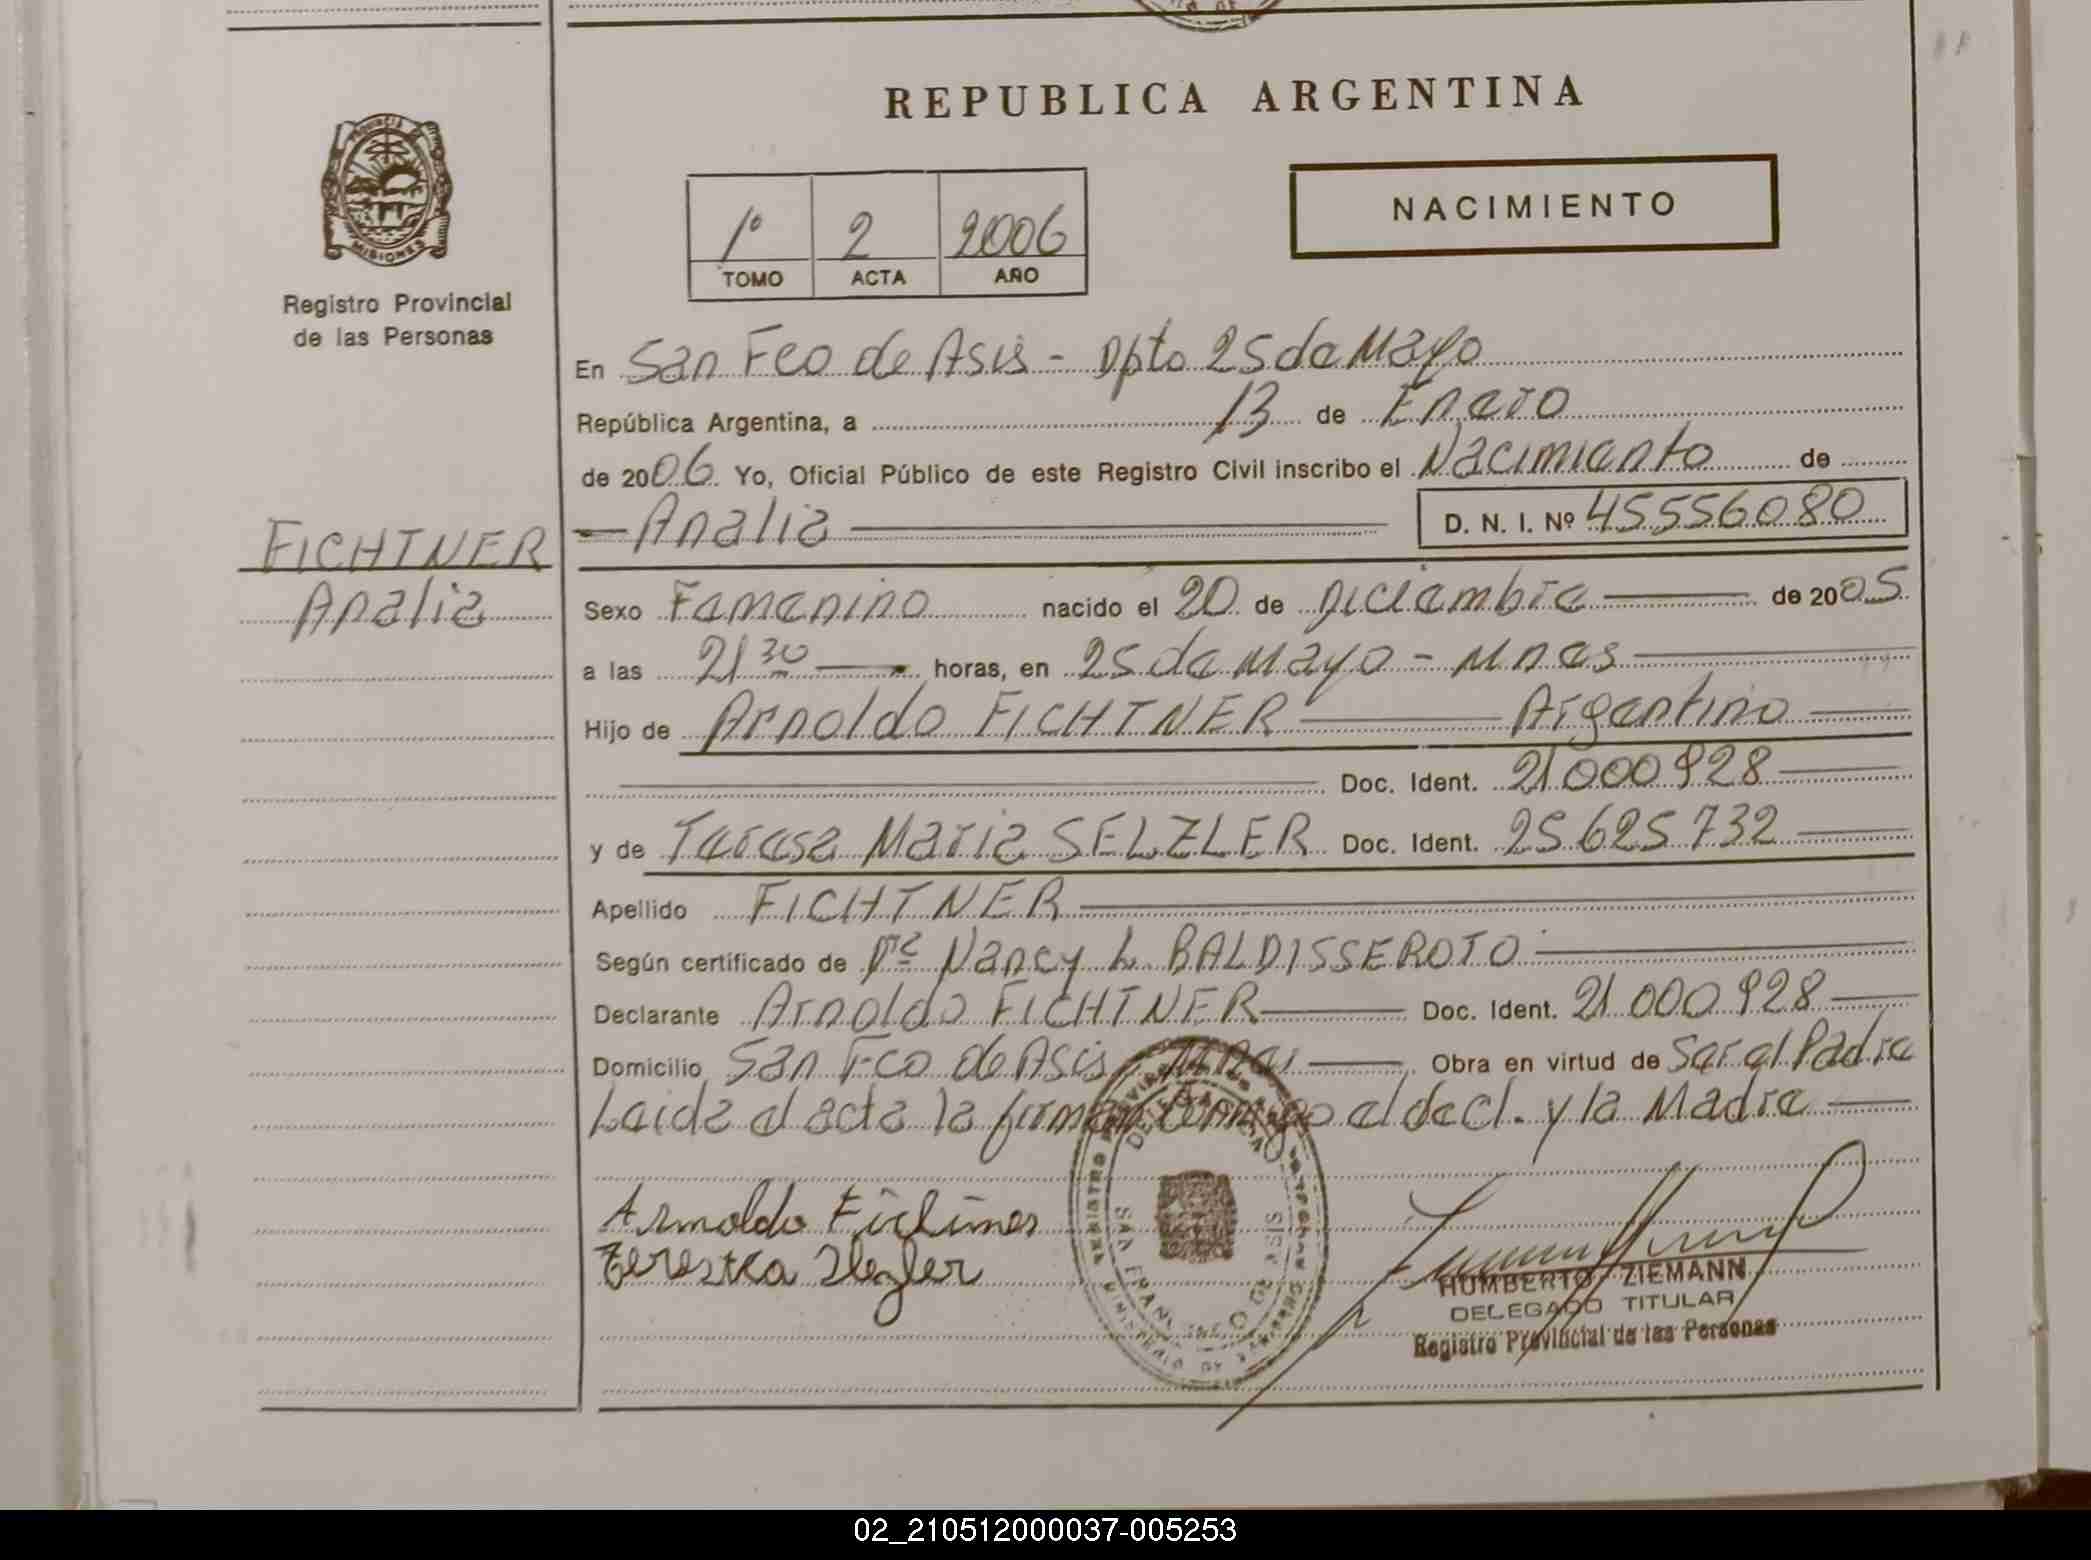 REPUBLICA ARGENTINA
NACIMIENTO
1º 2 2006
TOMO ACTA AÑO
PROVINCIA DE
MISIONES
Registro Provincial
de las Personas
FICHTNER
Analia
En San Fco de Asis - Dpto 25 de Mayo
República Argentina, a 13 de Enero
de 2006 Yo, Oficial Público de este Registro Civil inscribo el Nacimiento de
Analia D. N. I. Nº 45556080
Sexo Femenino nacido el 20 de Diciembre de 2005
a las 21 30 horas, en 25 de Mayo - Mnes
Hijo de Arnoldo FICHTNER Argentino
Doc. Ident. 21.000.928
y de Teresa Maria SELZLER Doc. Ident. 25.625.732
Apellido FICHTNER
Según certificado de Dra Nancy L. BALDISSEROTO
Declarante Arnoldo FICHTNER Doc. Ident. 21.000.928
Domicilio San Fco de Asis - Mnes Obra en virtud de Ser el Padre
Leida el acta la firman conmigo el decl. y la Madre
Arnoldo Fichtner
HUMBERTO ZIEMANN
DELEGADO TITULAR
Registro Provincial de las Personas
02_210512000037-005253